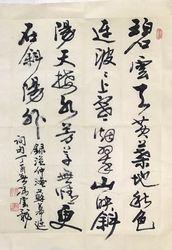 碧雲天黃葉地秋色
連波々上寒烟翠山映斜
陽天接水芳草無情更
在斜陽外
録范仲淹蘇幕遮
詞句丁亥